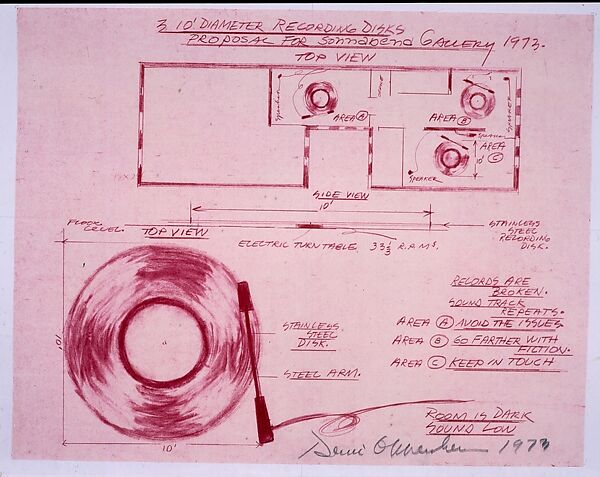 3 10' DIAMETER RECORDING DISKS
PROPOSAL FOR Sonnabend GALLERY 1973.
TOP VIEW
Speaker
AREA A
AREA B
SPEAKER
SPEAKER
AREA C
10'
SPEAKER
SIDE VIEW
10'
FLOOR LEVEL.
TOP VIEW
ELECTRIC TURNTABLE. 33 1/3 R.P.M.S.
STAINLESS
STEEL
RECORDING
DISK.
10'
STAINLESS
STEEL
DISK.
STEEL ARM.
10'
RECORDS ARE
BROKEN.
SOUND TRACK
REPEATS.
AREA A AVOID THE ISSUES
AREA B GO FARTHER WITH
FICTION.
AREA C KEEP IN TOUCH
ROOM IS DARK
SOUND LOW
Dennis Oppenheim 1973